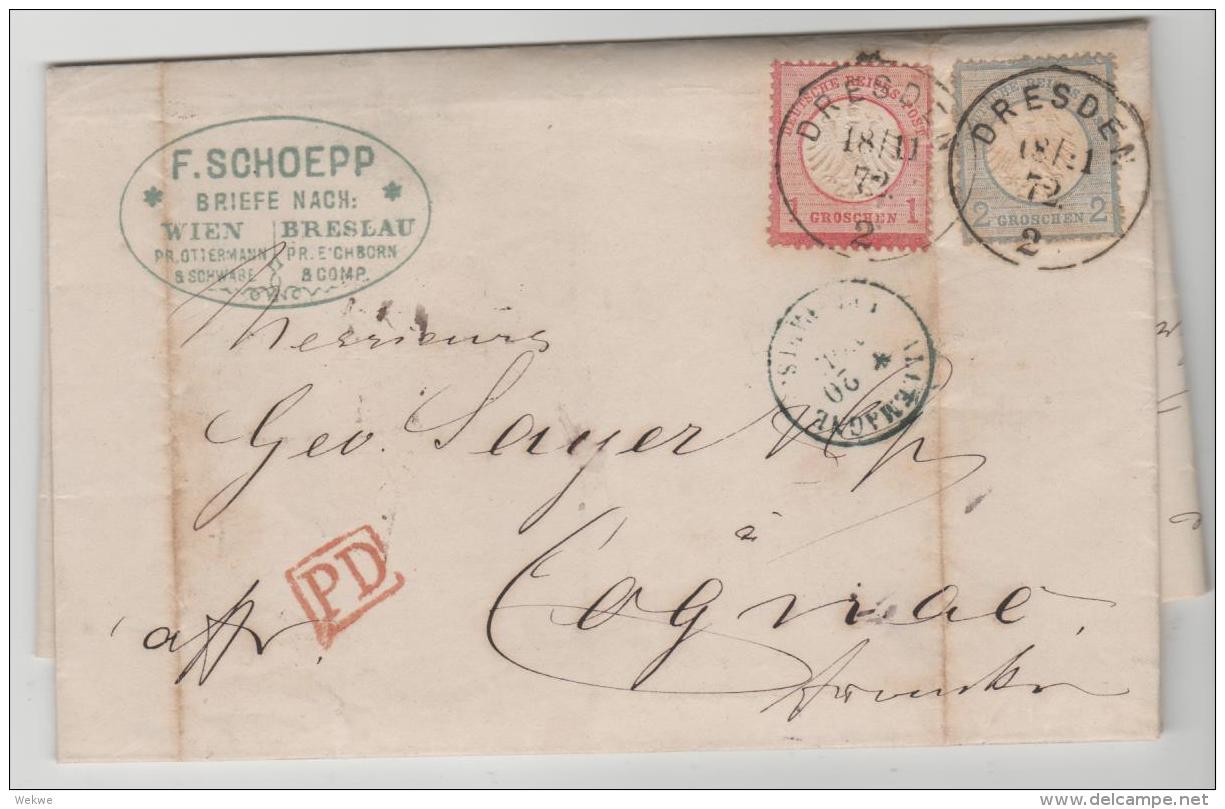 F. SCHOEPP
BRIEFE NACH:
WIEN BRESLAU
PR. OTTERMANN PR. EICHBORN
& SCHWABE & COMP.
DEUTSCHE REICHS-POST
1 GROSCHEN 1
DRESDEN
18/11
72
2
2 GROSCHEN 2
DRESDEN
18/11
72
2
ALLEMAGNE
20
Messieurs
Geo. Sayer
à
Cognac
affr.
PD
Wekwe